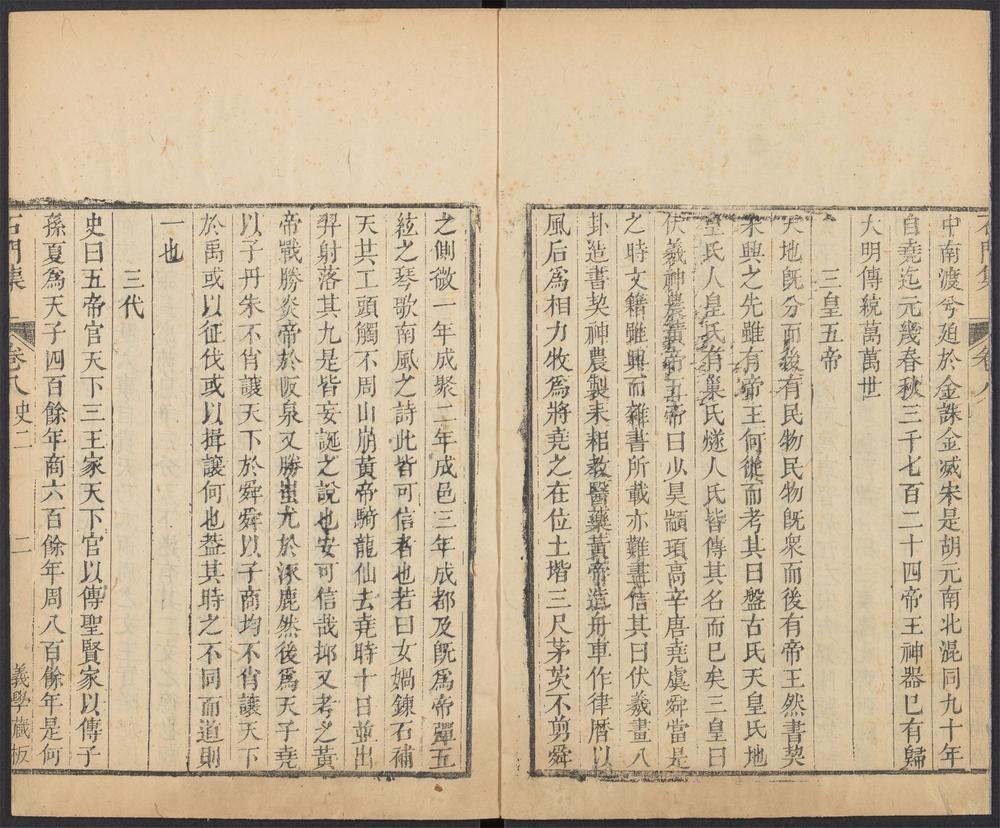 石門集
卷八
中南渡兮廹於金誅金滅宋是胡元南北混同九十年
自堯迄元幾春秋三千七百二十四帝王神器已有歸
大明傳統萬萬世
三皇五帝
天地旣分而後有民物民物旣衆而後有帝王然書契
未興之先雖有帝王何從而考其曰盤古氏天皇氏地
皇氏人皇氏有巢氏燧人氏皆傳其名而已矣三皇曰
伏羲神農黃帝五帝曰少昊顓頊高辛唐堯虞舜當是
之時文籍雖興而雜書所載亦難盡信其曰伏羲畫八
卦造書契神農製耒耜教醫藥黃帝造舟車作律曆以
風后爲相力牧爲將堯之在位土堦三尺茅茨不剪舜
之側微一年成聚二年成邑三年成都及旣爲帝彈五
絃之琴歌南風之詩此皆可信者也若曰女媧鍊石補
天其工頭觸不周山崩黃帝騎龍仙去堯時十日並出
羿射落其九是皆妄誕之說也安可信哉抑又考之黃
帝戰勝炎帝於阪泉又勝蚩尤於涿鹿然後爲天子堯
以子丹朱不肖讓天下於舜舜以子商均不肖讓天下
於禹或以征伐或以揖讓何也葢其時之不同而道則
一也
三代
史曰五帝官天下三王家天下官以傳聖賢家以傳子
孫夏爲天子四百餘年商六百餘年周八百餘年是何
石門集
卷八史二
二
義學藏板